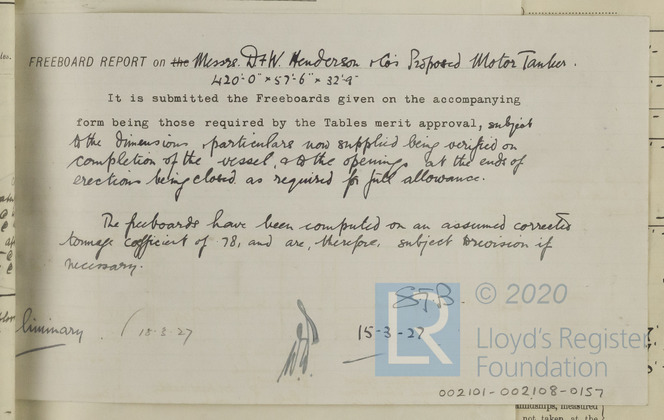 FREEBOARD REPORT on the Messrs. D & W. Henderson & Co's Proposed Motor Tanker.
420'-0" × 57'-6" × 32'-9"
It is submitted the Freeboards given on the accompanying
form being those required by the Tables merit approval, subject
to the dimensions, particulars now supplied being verified on
completion of the vessel, & to the openings at the ends of
erections being closed as required for full allowance.
The freeboards have been computed on an assumed corrected
tonnage coefficient of 78, and are, therefore, subject to revision if
necessary.
STB.
liminary. 15-3-27
15-3-27
© 2020
LR
Lloyd's Register
Foundation
002101-002108-0157
not taken at the